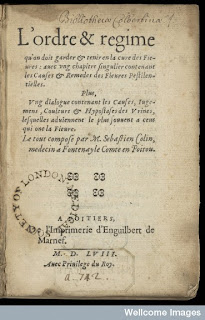 Bibliotheca Colbertina
L'ordre & regime
qu'on doit garder & tenir en la cure des Fieures
: auec vng chapitre singulier contenant
les Causes & Remedes des Fieures Pestilen-
tielles.
Plus,
Vng dialogue contenant les Causes, Iuge-
mens, Couleurs & Hypostases des Vrines,
lesquelles aduiennent le plus souuent a ceux
qui ont la Fieure.
Le tout composé par M. Sebastien Colin,
medecin a Fontenay le Comte en Poitou.
A POITIERS,
De l'Imprimerie d'Enguilbert de
Marnef.
M. D. LVIII.
Auec Priuilege du Roy.
LONDON
Wellcome Images